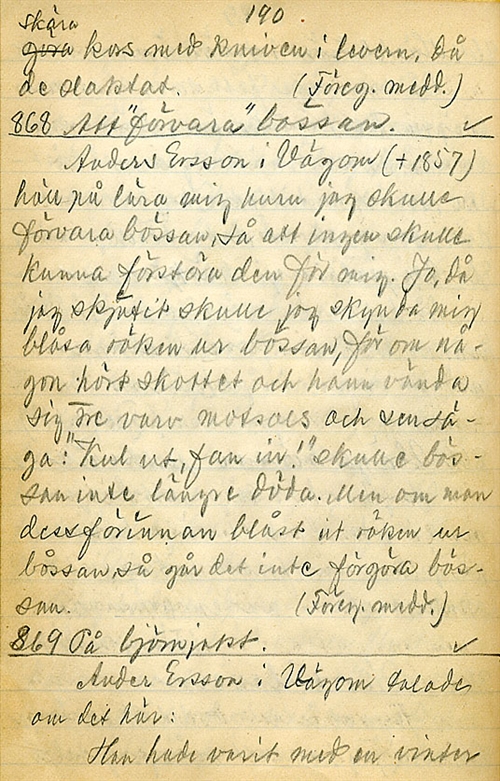 190.
skära
göra kors med kniven i levern, då
de slaktat. (Föreg. medd.)
868 Att "förvara" bössan.
Anders Ersson i Vägom (+1857)
höll på lära mig huru jag skulle
förvara bössan, så att ingen skulle
kunna förstöra den för mig. Jo, då
jag skjutit skulle jag skynda mig
blåsa röken ur bössan, för om nå-
gon hört skottet och hann vända
sig tre varv motsols och sen sä-
ga: "Kul ut, fan in!" skulle bös-
san inte längre döda. Men om man
dessförinnan blåst ut röken ur
bössan, så går det inte förgöra bös-
san. (Föreg. medd.)
869 På björnjakt.
Ander Ersson i Vägom talade
om det här:
Han hade varit med en vinter